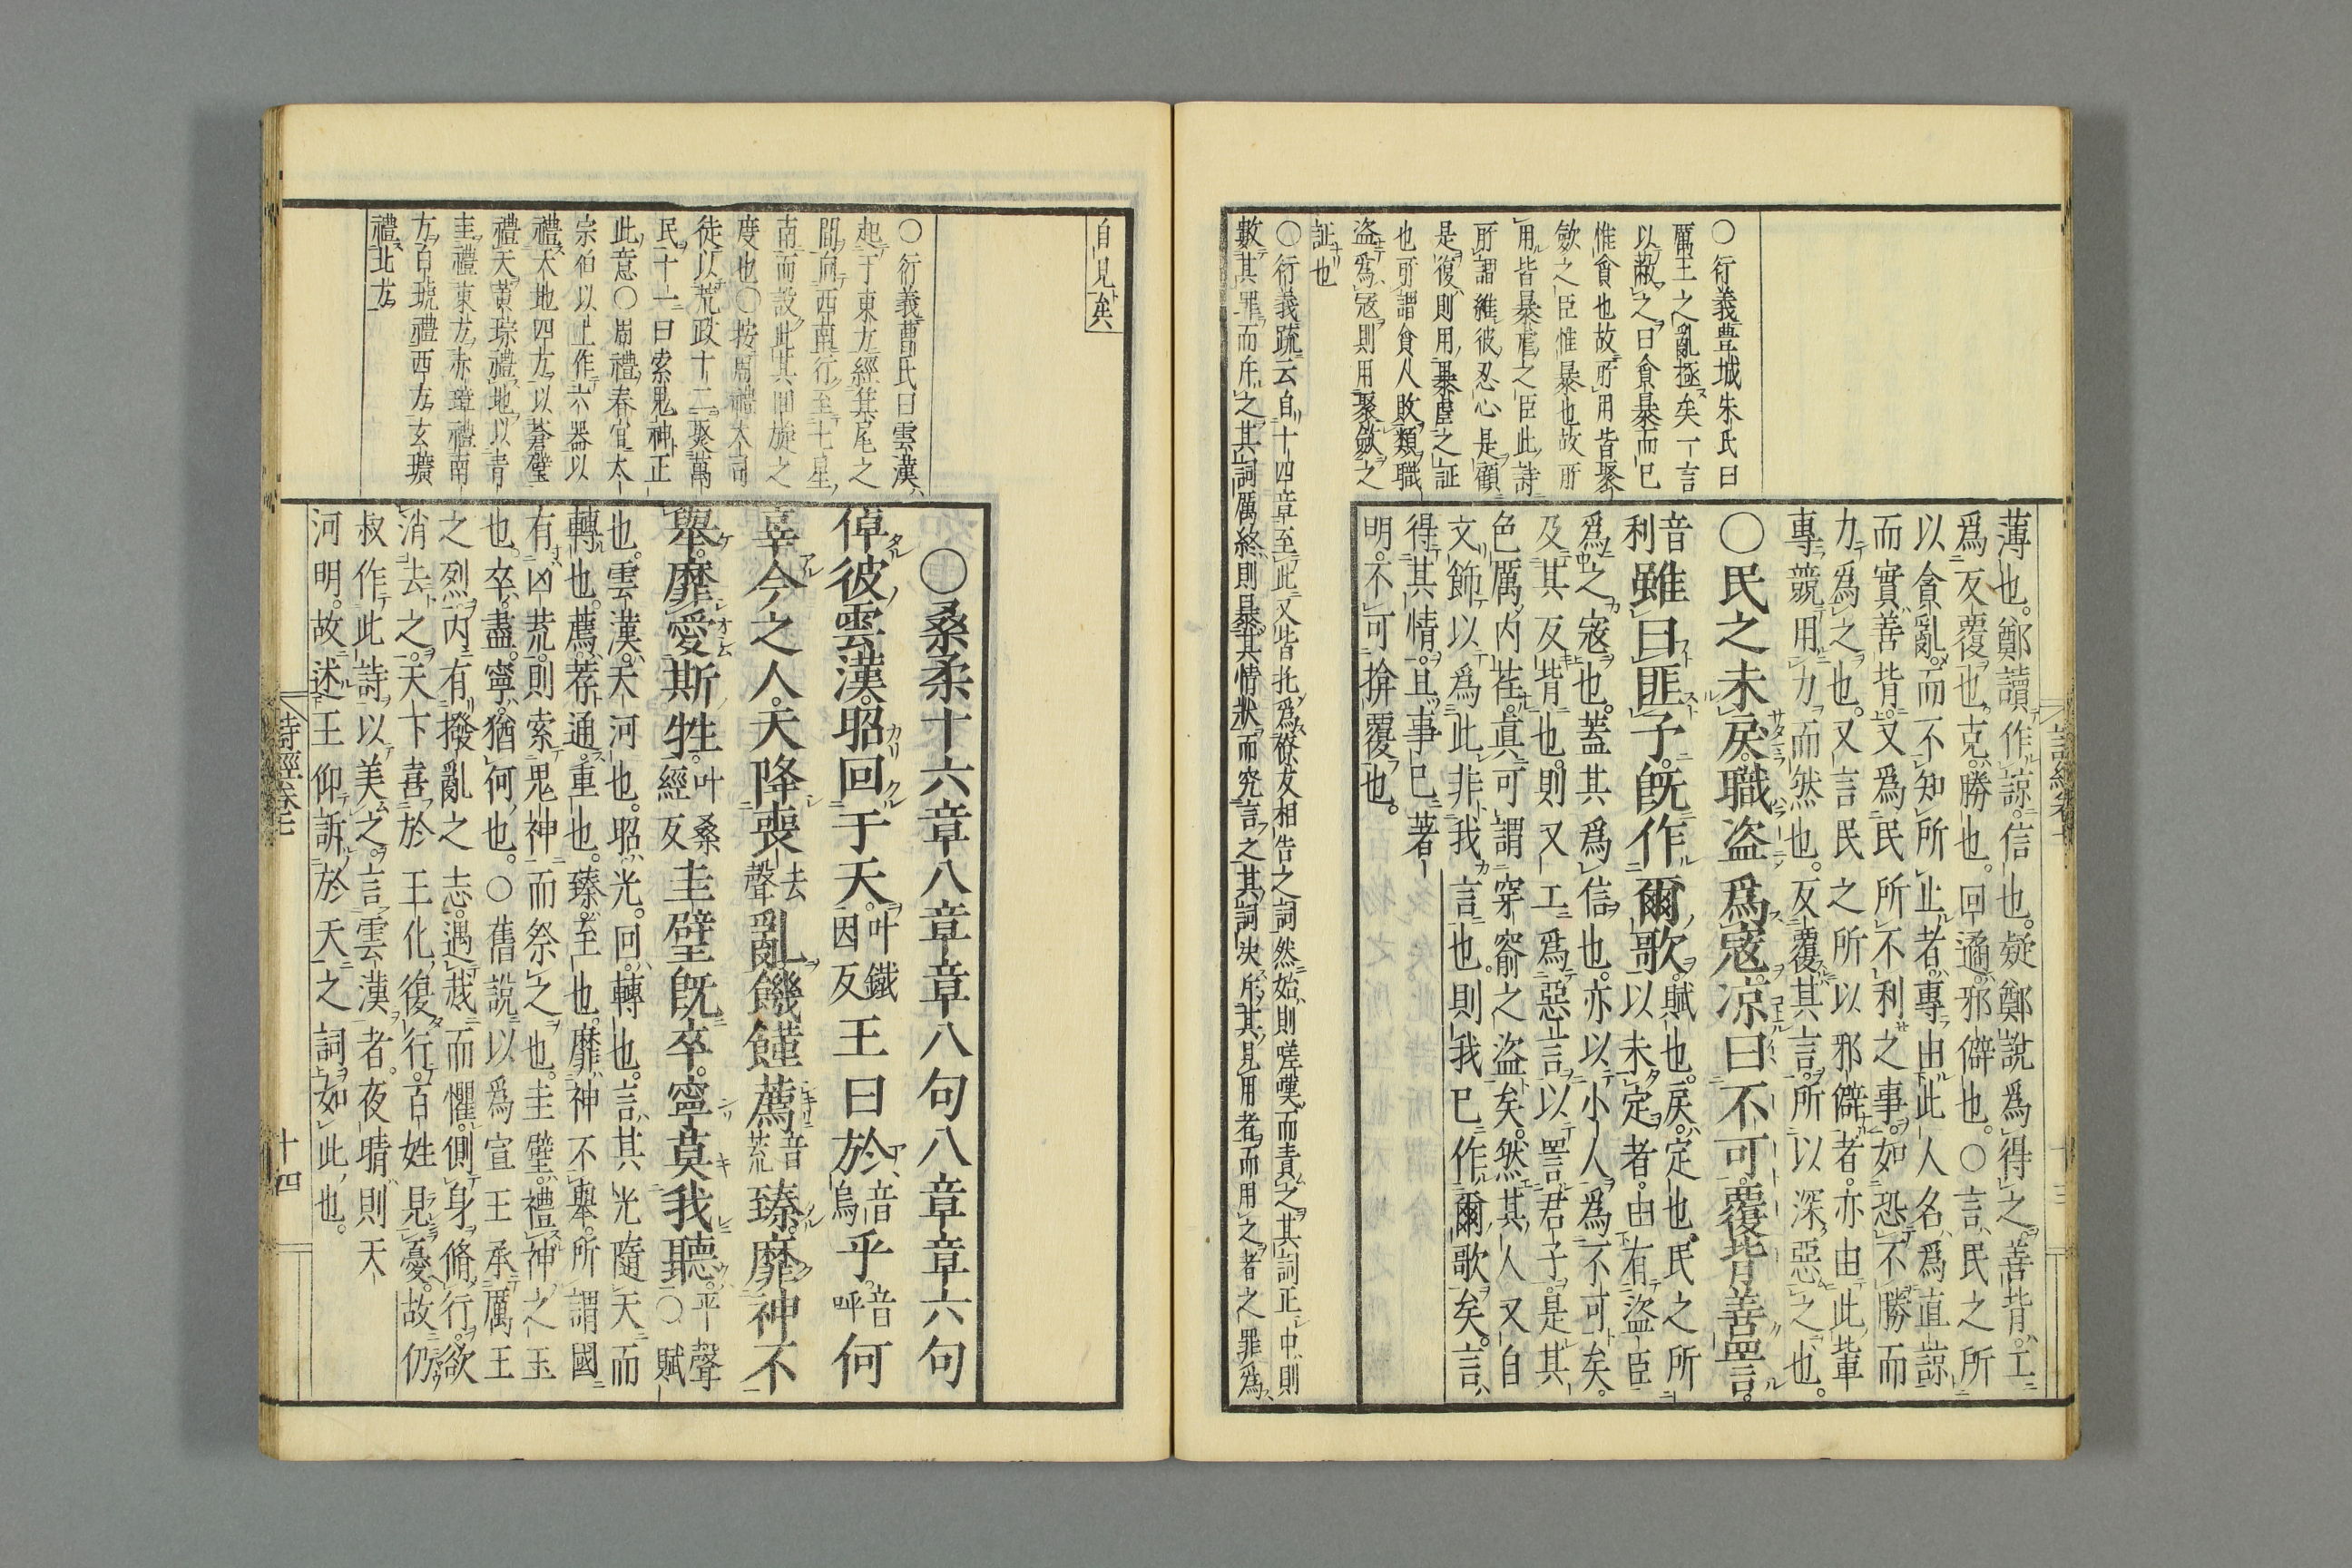 ○衍義豊城朱氏曰
厲王之亂極矣一言
以蔽之曰貪暴而已
惟貪也故所用皆聚
斂之臣惟暴也故所
用皆暴虐之臣此詩
所謂維彼忍心是顧
是復則用暴虐之証
也所謂貪人敗類職
盗爲寇則用聚斂之
証也
○衍義疏云自十四章至此又皆托爲僚友相告之詞然始則嗟嘆而責之其詞正中則
數其罪而斥之其詞厲終則暴其情狀而究言之其詞决斥其見用者而用之者之罪爲
薄也。鄭讀作諒。信也。疑鄭說爲得之。善背。工
爲反覆也。克。勝也。回遹。邪僻也。○言民之所
以貪亂而不知所止者。專由此人名爲直諒
而實善背。又爲民所不利之事。如恐不勝而
力爲之也。又言民之所以邪僻者。亦由此輩
專競用力而然也。反覆其言。所以深惡之也。
○民之未戾。職盗爲寇。凉曰不可。覆背善詈。
音利雖曰匪予。旣作爾歌。賦也。戾。定也。民之所
以未定者。由有盗臣
爲之寇也。蓋其爲信也。亦以小人爲不可矣。
及其反背也。則又工爲惡言以詈君子。是其
色厲内荏。眞可謂穿窬之盗矣。然其人又自
文飾以爲此非我言也。則我已作爾歌矣。言
得其情。且事已著
明。不可揜覆也。
詩經卷七
十三
自見矣
○衍義曹氏曰雲漢
起于東方經箕尾之
間向西南行至七星
南而設此其回旋之
度也○按周禮大司
徒以荒政十二聚萬
民十一曰索鬼神正
此意○周禮春官大
宗伯以玉作六器以
禮天地四方以蒼璧
禮天黄琮禮地以青
圭禮東方赤璋禮南
方白琥禮西方玄璜
禮北方
○桑柔十六章八章章八句八章章六句
倬彼雲漢。昭回于天。叶鐵因反王曰於音烏乎。音呼何
辜今之人。天降喪去聲亂。饑饉薦音荒臻。靡神不
舉。靡愛斯牲。叶桑經反圭璧旣卒。寧莫我聽。平聲○賦
也。雲漢。天河也。昭。光。回。轉也。言其光隨天而
轉也。薦。荐通。重也。臻。至也。靡神不舉。所謂國
有凶荒。則索鬼神而祭之也。圭璧。禮神之玉
也。卒。盡。寧。猶何也。○舊說以爲宣王承厲王
之烈。内有撥亂之志。遇烖而懼。側身脩行。欲
消去之。天下喜於王化復行。百姓見憂。故仍
叔作此詩以美之。言雲漢者。夜晴則天
河明。故述王仰訴於天之詞如此也。
詩經卷七
十四